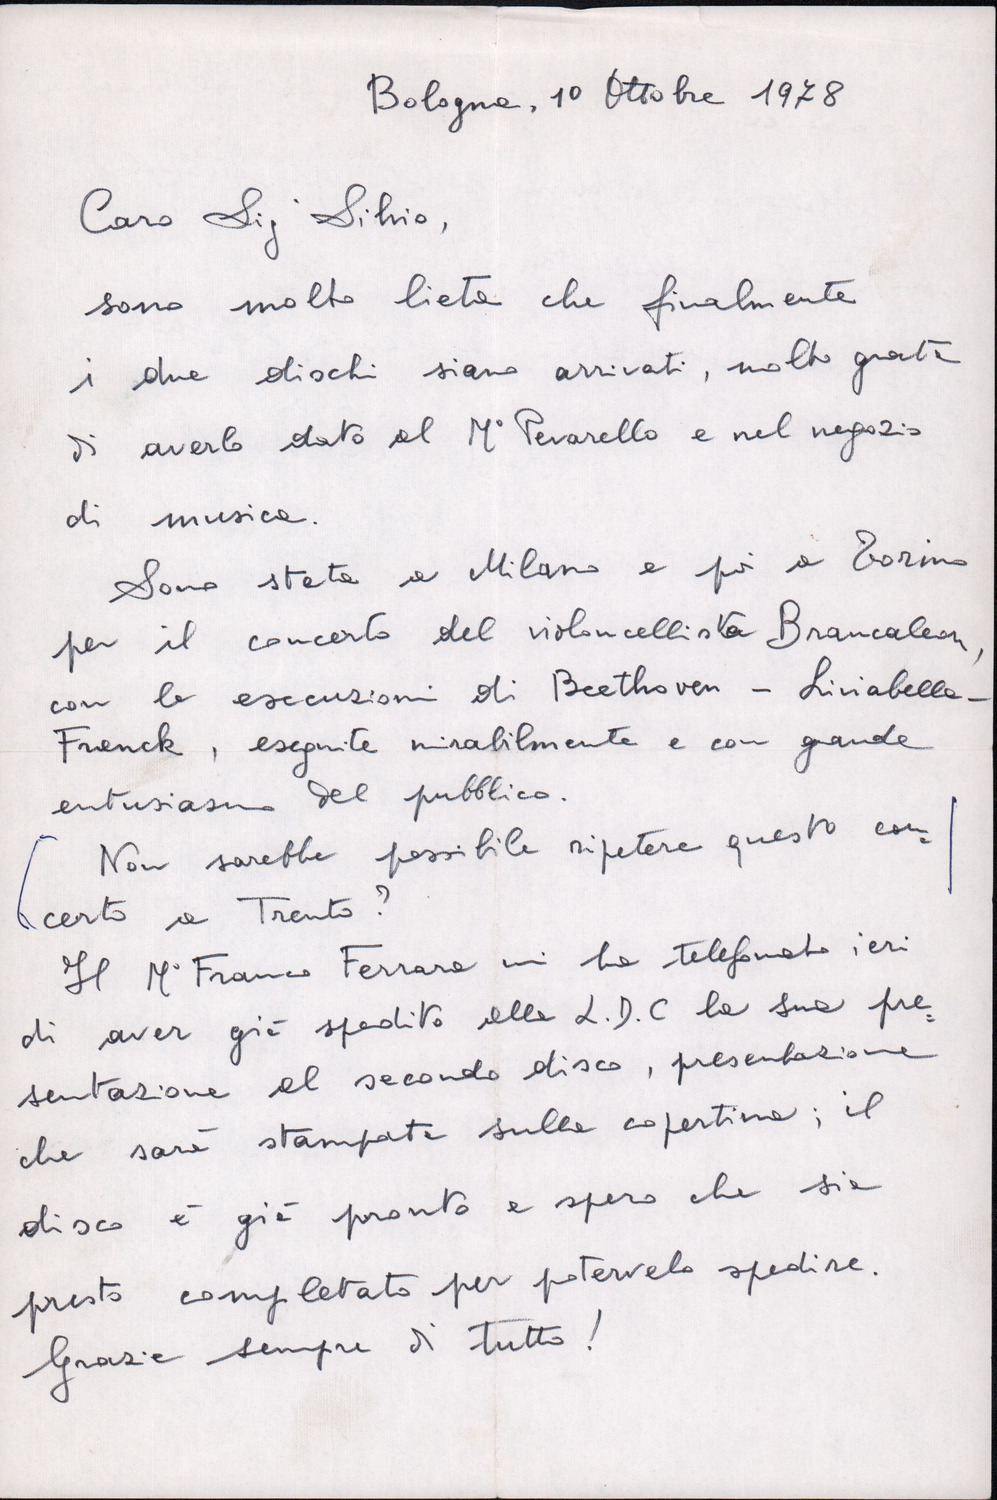 Bologna, 10 Ottobre 1978
Caro Sigʳ Silvio,
sono molto lieta che finalmente
i due dischi siano arrivati, molto grata
di averlo dato al M° Pevarello e nel negozio
di musica.
Sono stata a Milano e poi a Torino
per il concerto del violoncellista Brancaleon,
con le esecuzioni di Beethoven – Liviabella –
Franck, eseguite mirabilmente e con grande
entusiasmo del pubblico.
Non sarebbe possibile ripetere questo con=
certo a Trento?
Il M° Franco Ferrara mi ha telefonato ieri
di aver già spedito alla L.D.C la sua pre=
sentazione al secondo disco, presentazione
che sarà stampata sulla copertina; il
disco è già pronto e spero che sia
presto completato per potervelo spedire.
Grazie sempre di tutto!